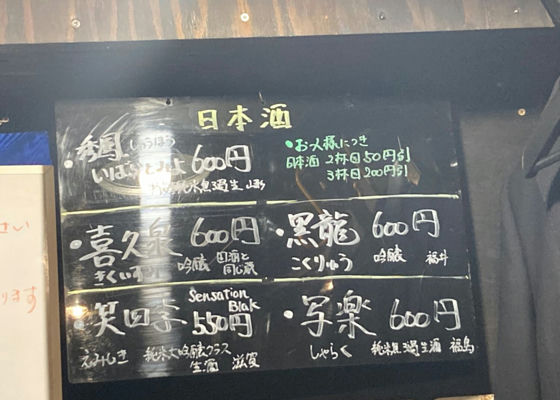 日本酒
しゅうほう
600円
・お一人様につき
日本酒 2杯目50円引
3杯目200円引
・喜久泉 600円
きくいずみ 吟醸 田酒と
同じ蔵
・黒龍 600円
こくりゅう 吟醸 福井
・笑四季 Sensation
Blak
550円
えみしき 純米大吟醸クラス
生酒 滋賀
・写楽 600円
しゃらく 純米無濾過生酒 福島
さい
ります